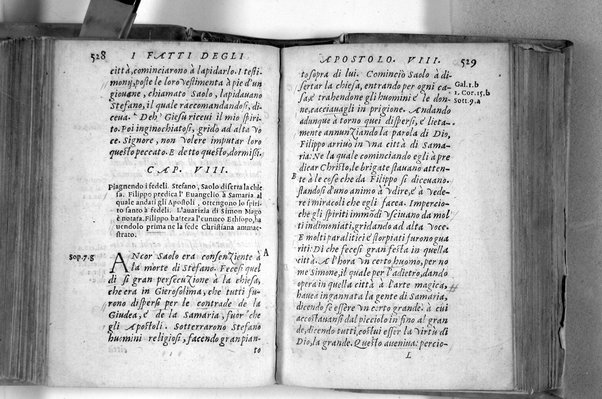 528 I FATTI DEGLI
città, cominciarono à lapidarlo. I testi-
mony, poste le loro vestimenta à pie d'un
giovane, chiamato Saolo, lapidavano
Stefano, il quale raccomandandosi, di-
ceva. Deh Giesu ricevi il mio spiri-
to. Poi inginochiatosi, grido ad alta vo
ce. Signore, non volere imputar loro
questo peccato. E detto questo, dormissi.
CAP. VIII.
Piagnendo i fedeli. Stefano, Saolo diserta la chie
sa. Filippo predica l'Euangelio à Samaria al
quale andati gli Apostoli, ottengono lo spiri-
to santo à fedeli. L'auarizia di Simon Mago
è notata. Filippo batteza l'eunuco Ethiopo, ha
uendolo prima ne la fede Christiana ammae-
strato.
Sop. 7. g
A
ANcor Saolo era consenziente à
la morte di Stefano. Fecesi quel
dì si gran persecuzione à la chiesa,
che era in Gierosolima, che tutti fu-
rono dispersi per le contrade de la
Giudea, e de la Samaria, fuor che
gli Apostoli. Sotterrarono Stefano
huomini religiosi, facendo gran pian-
to
APOSTOLO. VIII. 529
to sopra di lui. Cominciò Saolo à di-
sertar la chiesa, entrando per ogni ca-
sa, e trahendone gli huomini e le don-
ne, cacciavagli in prigione. Andando
adunque à torno quei dispersi, e lieta-
mente annunziando la parola di Dio,
Filippo arrivo in una città di Sama-
ria: Ne la quale cominciando egli à pre
dicar Christo, le brigate stavano atten-
te à le cose che da Filippo si dicevano:
standosi d'uno animo à udire, e à vede-
re i miracoli che egli facea. Impercio-
che gli spiriti immodi usciuano da mol
ti indimoniati, gridando ad alta voce.
E molti paralitici e storpiati furono gua
riti: Di che fecesi gran festa in quella
città. A l'hora un certo huomo, per no-
me Simone, il quale per l'adietro, dando
opera in quella città à l'arte magica,
havea ingannata la gente di Samaria,
dicendo se essere un certo grande: à cui
accostavansi dal picciolo in fino al gran
de, dicendo tutti, costui esser la virtu di
Dio, la grande. Questo aveniva: percio-
L
Gal. 1. b
1. Cor. 15. b
Sott. 9. a
B